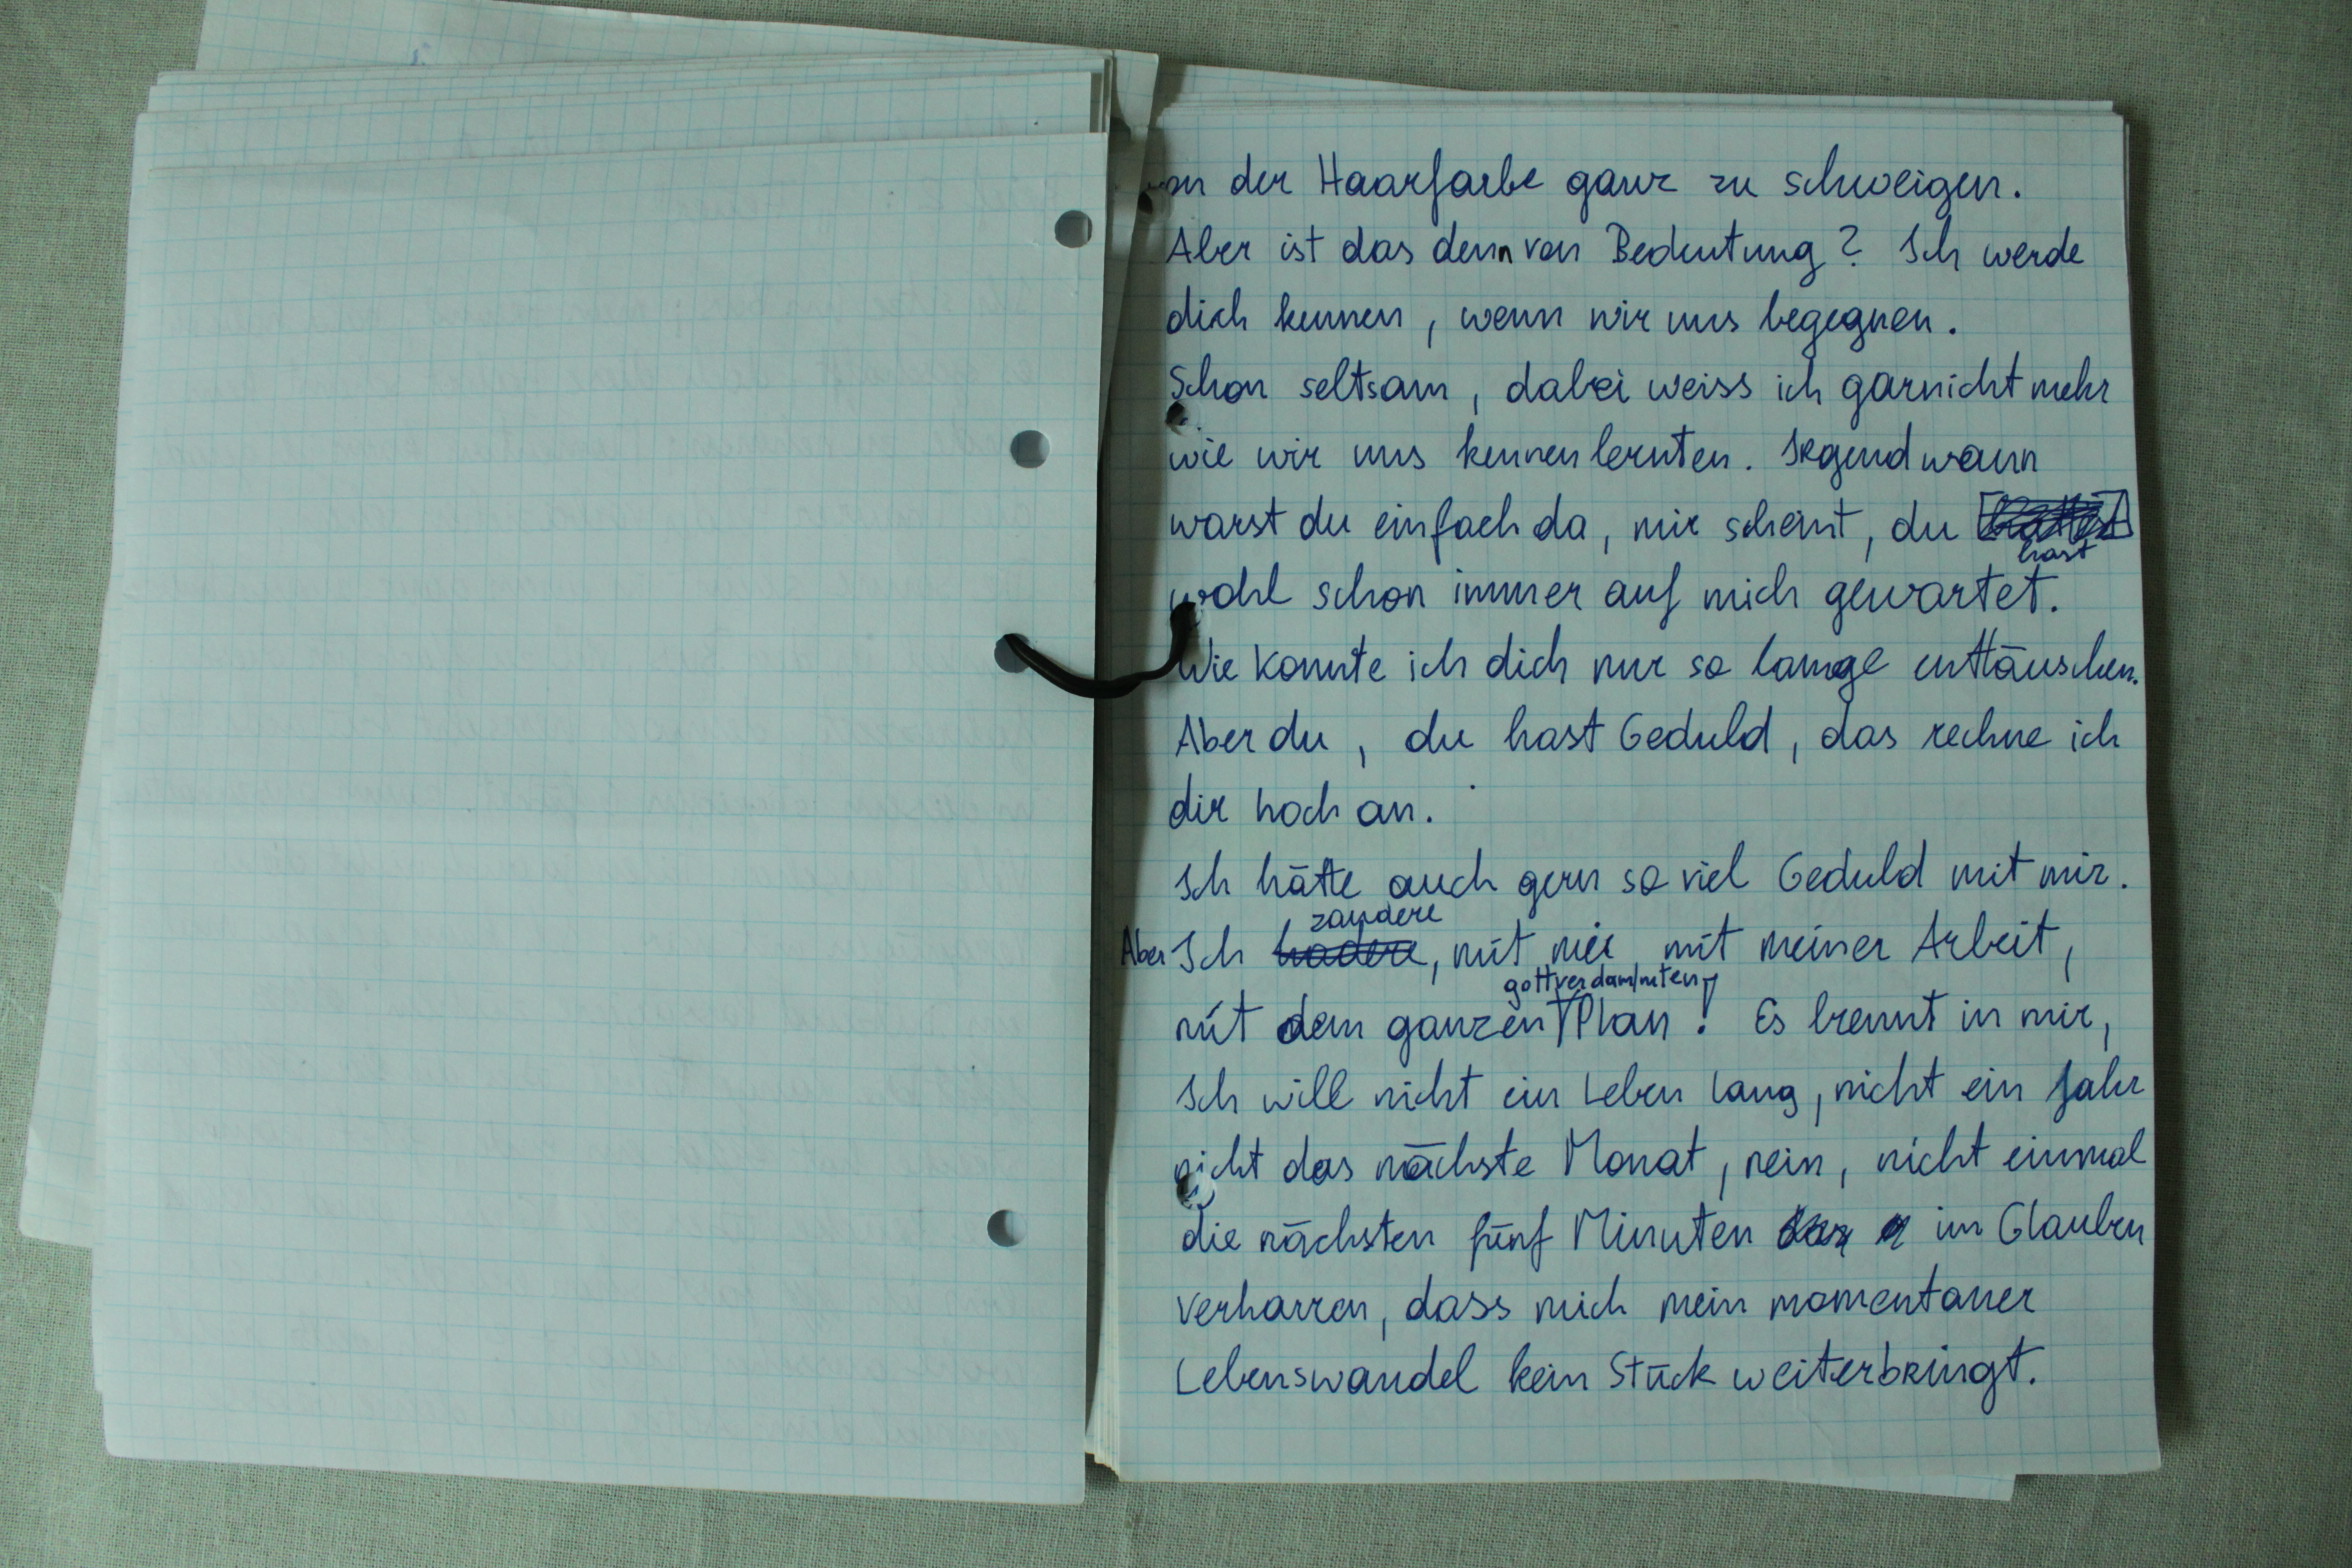 von der Haarfarbe ganz zu schweigen.
Aber ist das denn von Bedeutung? Ich werde
dich kennen, wenn wir uns begegnen.
Schon seltsam, dabei weiss ich garnicht mehr
wie wir uns kennen lernten. Irgendwann
warst du einfach da, mir scheint, du
hast
wohl schon immer auf mich gewartet.
Wie konnte ich dich nur so lange enttäuschen.
Aber du, du hast Geduld, das rechne ich
dir hoch an.
Ich hätte auch gern so viel Geduld mit mir.
zaudere
Aber Ich hadere, mit mir, mit meiner Arbeit,
gottverdammten
mit dem ganzen Plan! Es brennt in mir,
Ich will nicht ein Leben lang, nicht ein Jahr
nicht das nächste Monat, nein, nicht einmal
die nächsten fünf Minuten im Glauben
verharren, dass mich mein momentaner
Lebenswandel kein Stück weiterbringt.